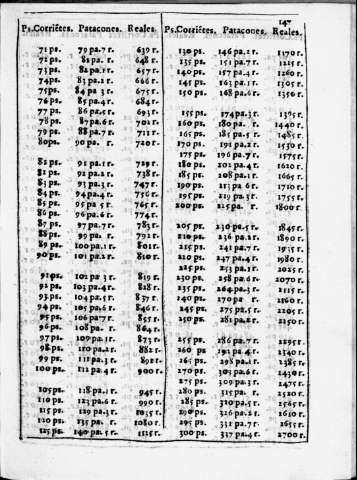 147
Ps. Corriētes. Patacones. Reales.
71 ps. 79 pa. 7 r. 639 r.
71 ps. 81 pa. r. 648 r.
73 ps. 82 pa. 1 r. 657 r.
74 ps. 83 pa. 2 r. 666 r.
75 ps. 84 pa 3 r. 675 r.
76 ps. 85 pa. 4 r. 684 r.
77 ps. 86 pa. 5 r. 693 r.
78 ps. 87 pa. 6 r. 702 r.
79 ps. 88 pa. 7 r. 711 r.
80 ps. 90 pa. r. 720 r.
81 ps. 91 pa. 1 r. 729 r.
82 ps. 92 pa. 2 r. 738 r.
83 ps. 93 pa. 3 r. 747 r.
84 ps. 94 pa. 4 r. 756 r.
85 ps. 95 pa. 5 r. 765 r.
86 ps. 96 pa. 6 r. 774 r.
87 ps. 97 pa. 7 r. 783 r.
88 ps. 99 pa. r. 792 r.
89 ps. 100 pa. 1 r. 801 r.
90 ps. 101 pa. 2 r. 810 r.
91 ps. 102 pa 3 r. 819 r.
92 ps. 103 pa. 4 r. 828 r.
93 ps. 104 pa. 5 r. 837 r.
94 ps. 105 pa. 6 r. 846 r.
95 ps. 106 pa 7 r. 855 r.
96 ps. 108 pa. r. 864 r.
97 ps. 109 pa. 1 r. 873 r.
98 ps. 110 pa. 2 r. 882 r.
99 ps. 111 pa. 3 r. 891 r.
100 ps. 112 pa. 4 r. 900 r.
105 ps. 118 pa. 1 r. 945 r.
110 ps. 123 pa. 6 r. 990 r.
115 ps. 129 pa. 3 r. 1035 r.
120 ps. 135 pa. r. 1080 r.
125 ps. 140 pa. 5 r. 1125 r.
Ps. Corriētes. Patacones. Reales.
130 ps. 146 pa. 2 r. 1170 r.
135 ps. 151 pa. 7 r. 1215 r.
140 ps. 157 pa. 4 r. 1260 r.
145 ps. 163 pa. 1 r. 1305 r.
150 ps. 168 pa. 6 r. 1350 r.
155 ps. 174 pa. 3 r. 1395 r.
160 ps. 180 pa. r. 1440 r.
165 ps. 185 pa. 5 r. 1485 r.
170 ps. 191 pa. 2 r. 1530 r.
175 ps. 196 pa. 7 r. 1575 r.
180 ps. 202 pa. 4 r. 1620 r.
185 ps. 208 pa. 1 r. 1665 r.
190 ps. 213 pa. 6 r. 1710 r.
195 ps. 219 pa. 3 r. 1755 r.
200 ps. 225 pa. r. 1800 r.
205 ps. 230 pa. 5 r. 1845 r.
210 ps. 236 pa. 2 r. 1890 r.
215 ps. 241 pa. 7 r. 1935 r.
220 ps. 247 pa. 4 r. 1980 r.
225 ps. 253 pa. 1 r. 2025 r.
230 ps. 258 pa. 6 r. 2070 r.
235 ps. 264 pa. 3 r. 2115 r.
240 ps. 270 pa r. 2160 r.
245 ps. 275 pa. 5 r. 2205 r.
250 ps. 281 pa. 2 r. 2250 r.
255 ps. 286 pa. 7 r. 2295 r.
260 ps 292 pa. 4 r. 2340 r.
265 ps. 298 pa. 1 r. 2385 r.
270 ps. 303 pa. 6 r. 2430 r.
275 ps. 309 pa. 3 r. 2475 r.
280 ps. 315 pa. r. 2520 r.
285 ps. 320 pa. 5 r. 2565 r.
290 ps. 326 pa. 2 r. 2610 r.
295 ps. 331 pa. 7 r. 2655 r.
300 ps. 337 pa. 4 r. 2700 r.